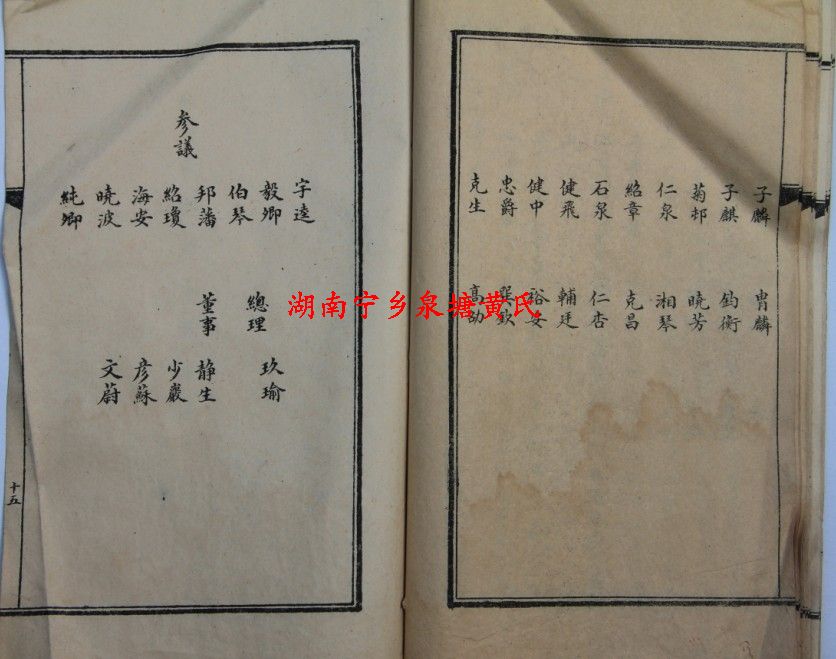 子麟 胄麟
子麒 鈞衡
菊邨 曉芳
仁泉 湘琴
紹章 克昌
石泉 仁杏
健飛 輔廷
健中 裕安
忠爵 巽欽
克生 高劭
字逵
毅卿 總理 玖瑜
伯琴
邦藩 董事 静生
参議 紹瓊 少巖
海安 彦蘇
曉波 文蔚
純卿
十五
湖南宁乡泉塘黄氏